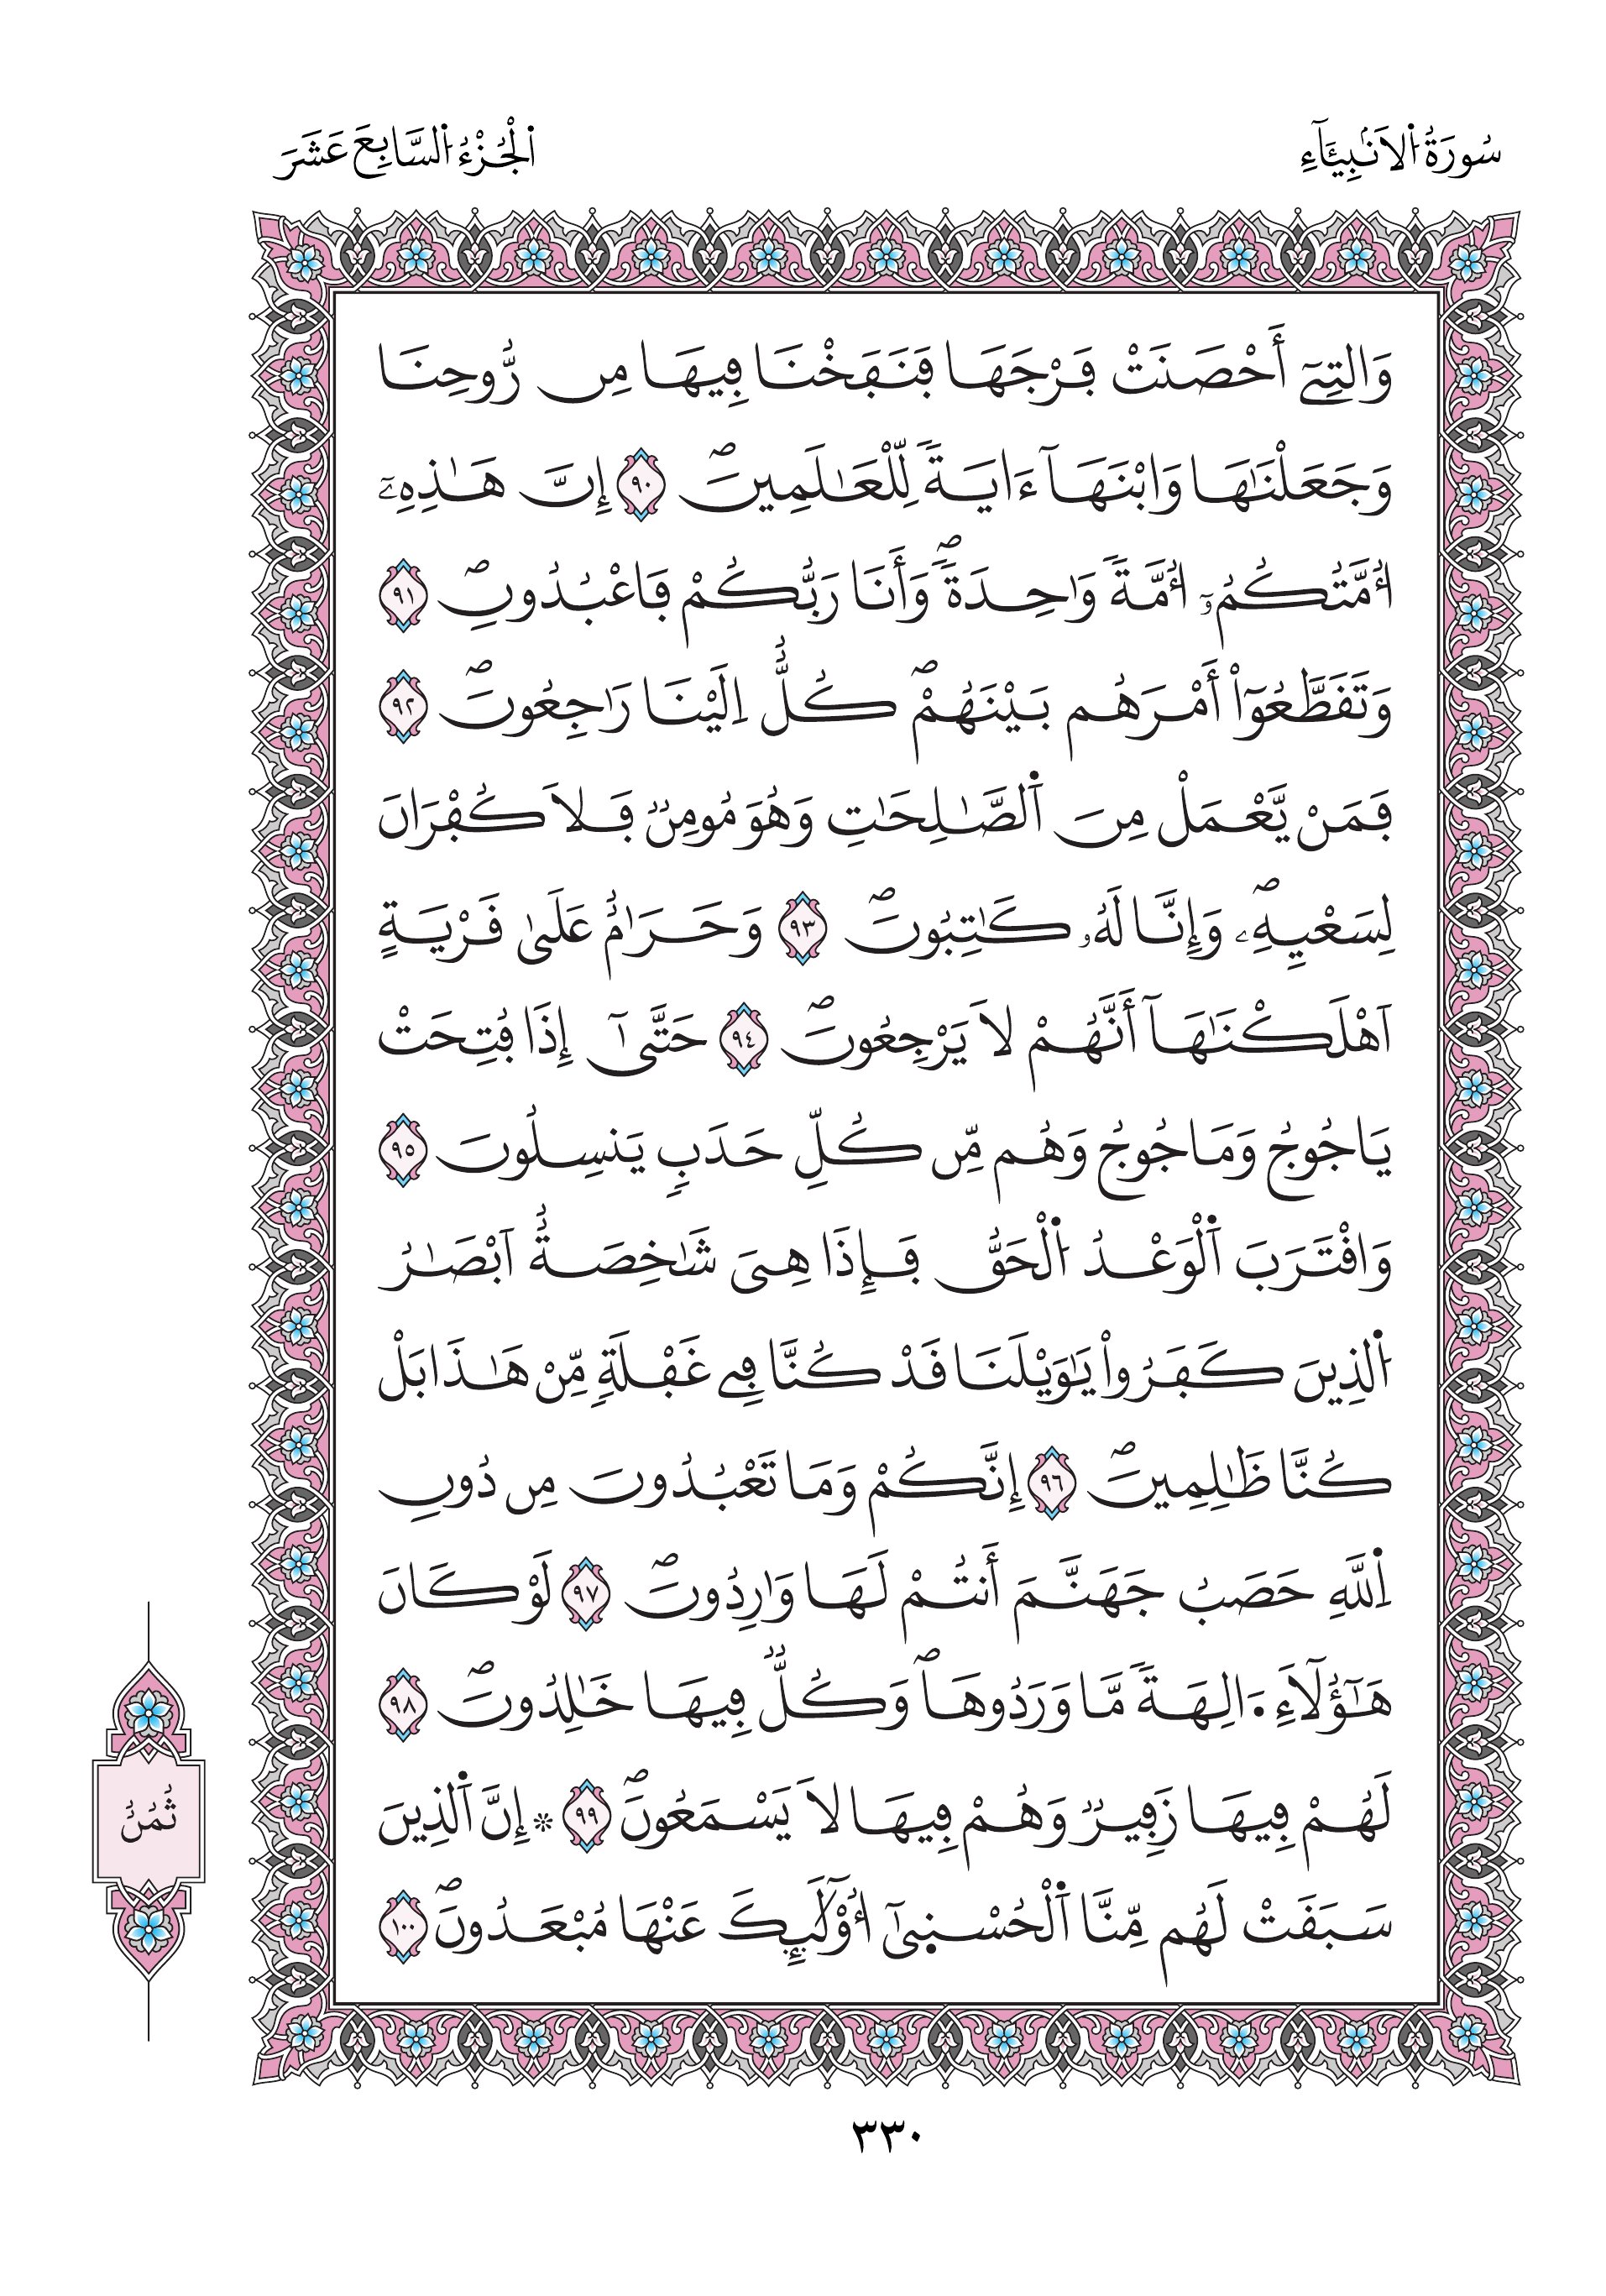 سُورَةُ اُ۬لَانۢبِيَآءِ
اَ۬لْجُزْءُ اُ۬لسَّابِعَ عَشَرَ
وَالتِےٓ أَحْصَنَتْ فَرْجَهَا فَنَفَخْنَا فِيهَا مِن رُّوحِنَا
وَجَعَلْنَٰهَا وَابْنَهَآ ءَايَةٗ لِّلْعَٰلَمِينَۖ ٩٠ إِنَّ هَٰذِهِۦٓ
أُمَّتُكُمُۥٓ أُمَّةٗ وَٰحِدَةٗۖ وَأَنَا رَبُّكُمْ فَاعْبُدُونِۖ ٩١
وَتَقَطَّعُوٓاْ أَمْرَهُم بَيْنَهُمْۖ كُلٌّ اِلَيْنَا رَٰجِعُونَۖ ٩٢
فَمَنْ يَّعْمَلْ مِنَ اَ۬لصَّٰلِحَٰتِ وَهُوَ مُومِنٞ فَلَا كُفْرَانَ
لِسَعْيِهِۦۖ وَإِنَّا لَهُۥ كَٰتِبُونَۖ ٩٣ وَحَرَٰمٌ عَلَىٰ قَرْيَةٍ
اَهْلَكْنَٰهَآ أَنَّهُمْ لَا يَرْجِعُونَۖ ٩٤ حَتَّىٰٓ إِذَا فُتِحَتْ
يَاجُوجُ وَمَاجُوجُ وَهُم مِّن كُلِّ حَدَبٖ يَنسِلُونَ ٩٥
وَاقْتَرَبَ اَ۬لْوَعْدُ اُ۬لْحَقُّ فَإِذَا هِىَ شَٰخِصَةٌ اَبْصَٰرُ
اُ۬لذِينَ كَفَرُواْ يَٰوَيْلَنَا قَدْ كُنَّا فِے غَفْلَةٖ مِّنْ هَٰذَا بَلْ
كُنَّا ظَٰلِمِينَۖ ٩٦ إِنَّكُمْ وَمَا تَعْبُدُونَ مِن دُونِ
اِ۬للَّهِ حَصَبُ جَهَنَّمَ أَنتُمْ لَهَا وَٰرِدُونَۖ ٩٧ لَوْ كَانَ
هَٰٓؤُلَآءِ ؞َالِهَةٗ مَّا وَرَدُوهَاۖ وَكُلّٞ فِيهَا خَٰلِدُونَۖ ٩٨
لَهُمْ فِيهَا زَفِيرٞ وَهُمْ فِيهَا لَا يَسْمَعُونَۖ ٩٩ * إِنَّ اَ۬لذِينَ
سَبَقَتْ لَهُم مِّنَّا اَ۬لْحُسْنِىٰٓ أُوْلَٰٓئِكَ عَنْهَا مُبْعَدُونَۖ ١٠٠
ثُمُنُ
٣٣٠